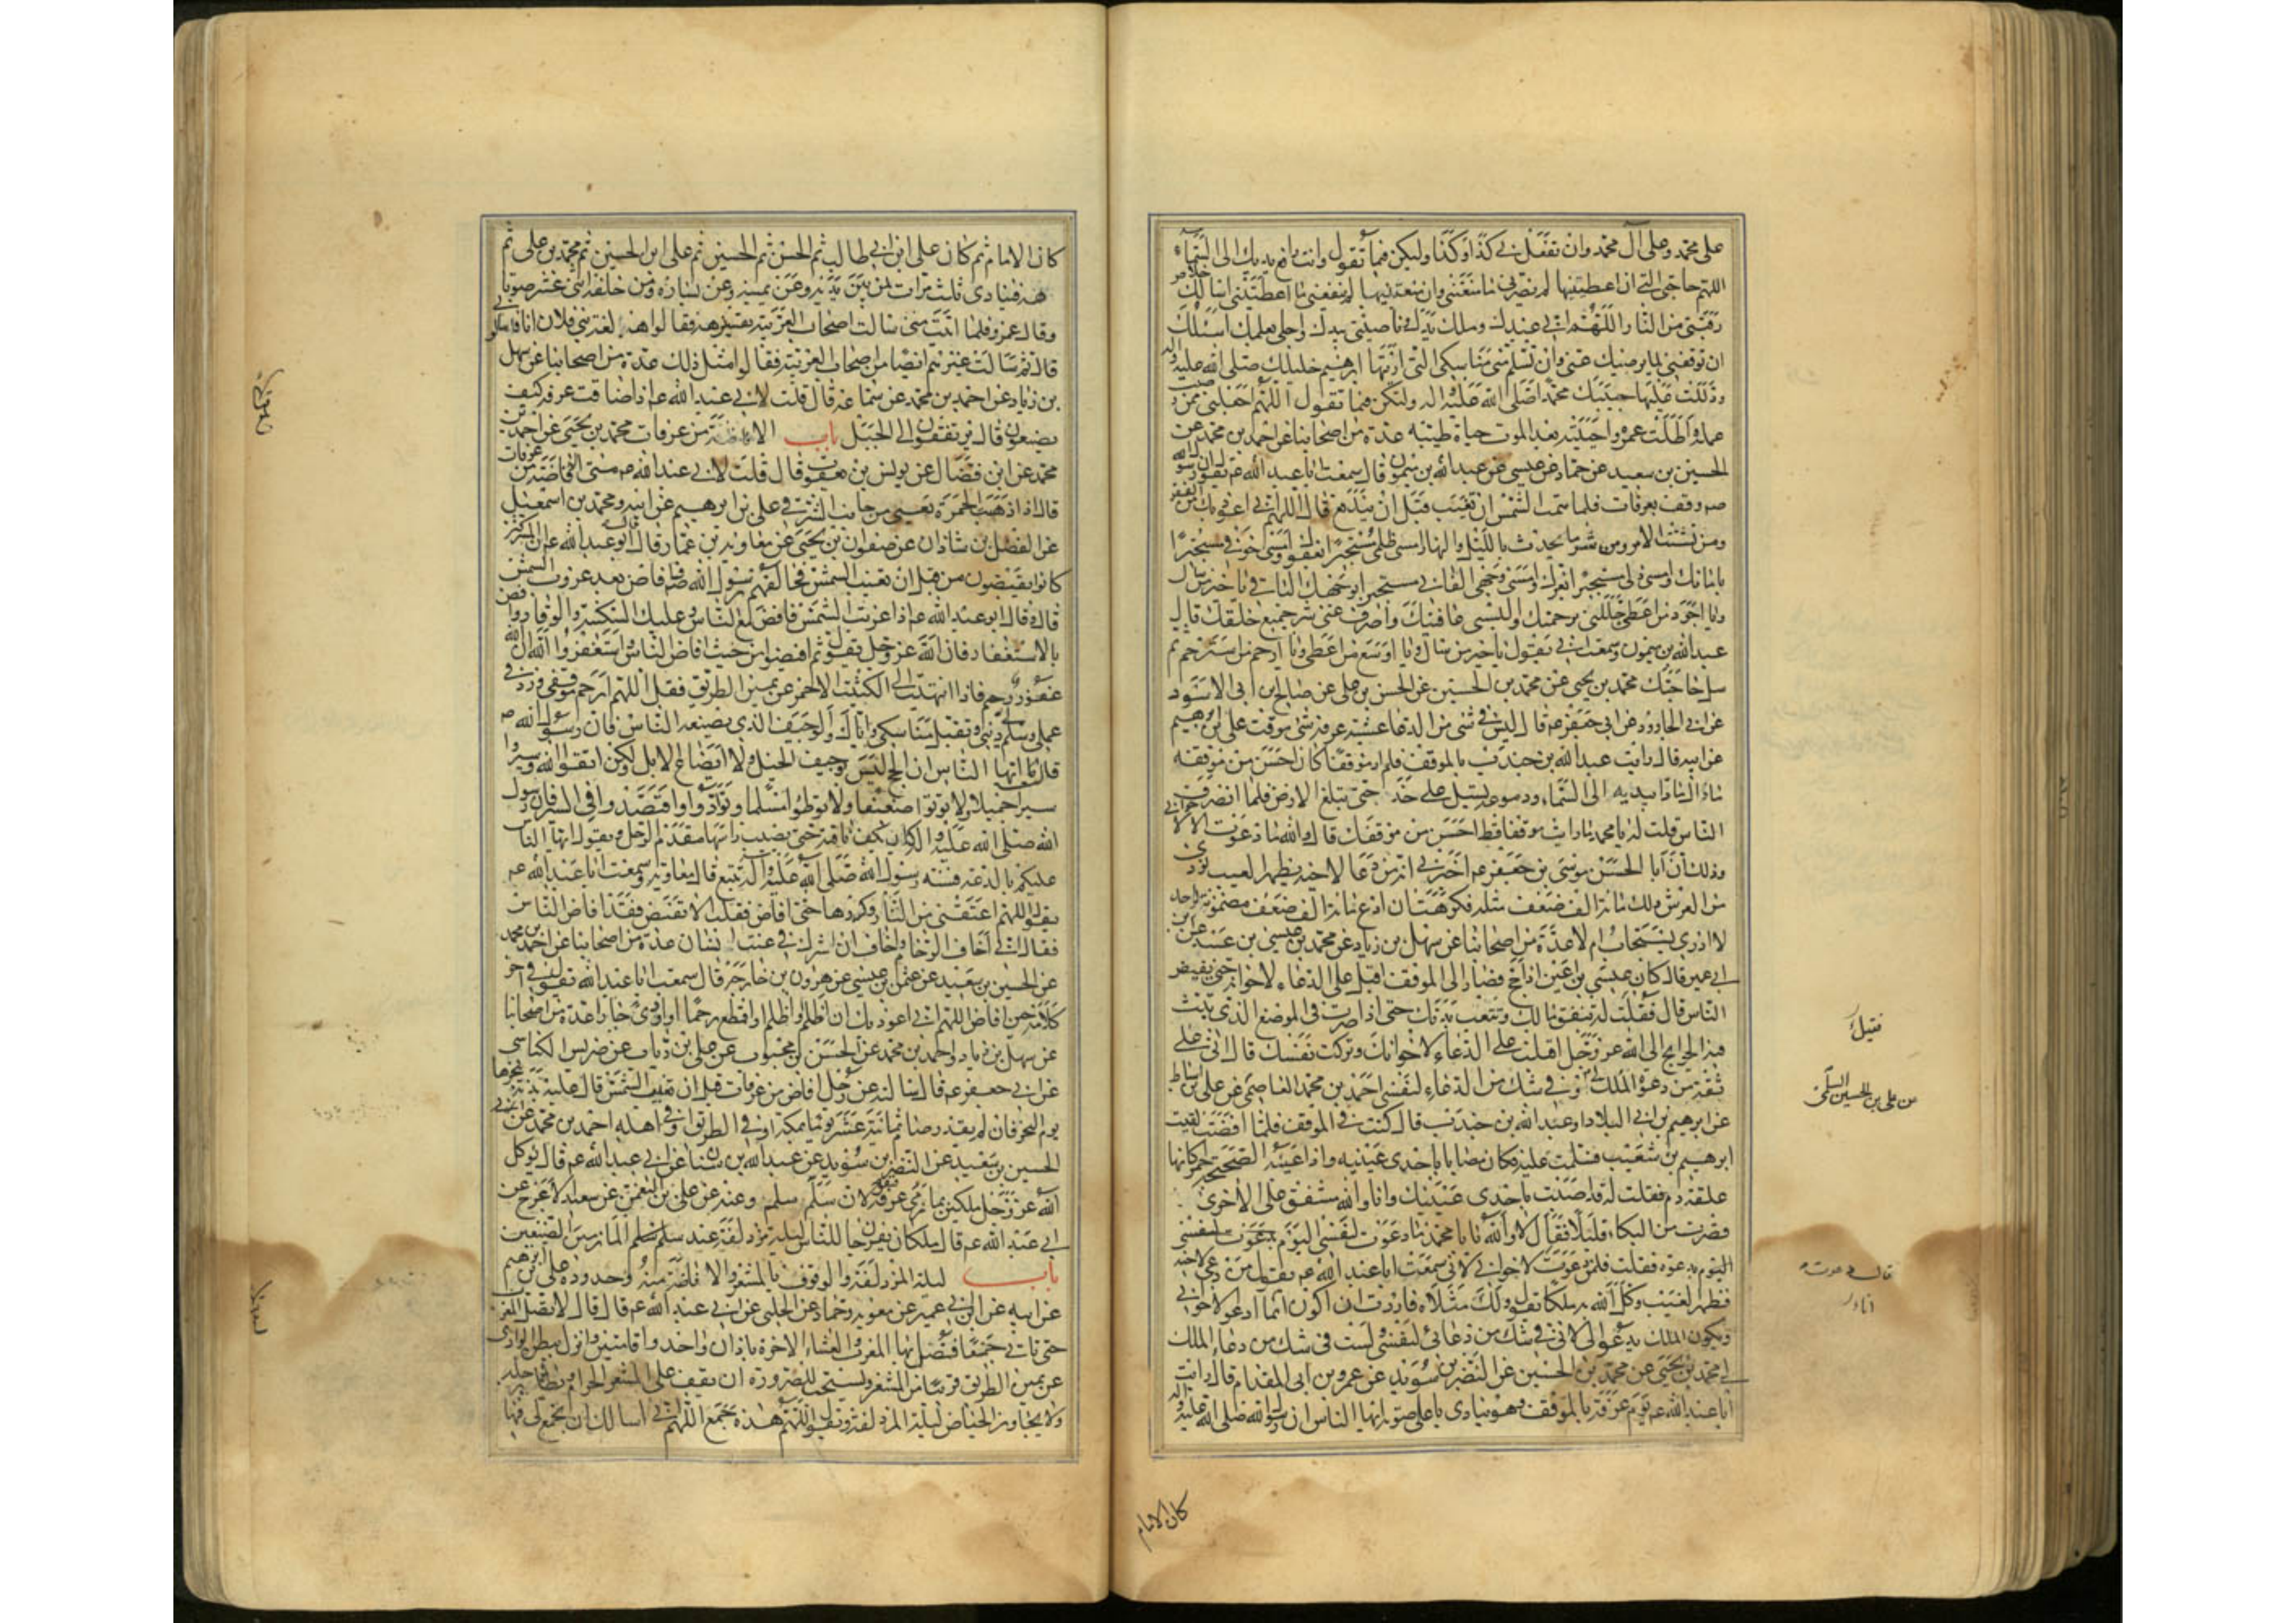 على محمد وعلى آل محمد وان تفعل بي كذا وكذا وليكن فيما تقول وانت رافع يديك الى السماء
اللهم حاجتى التي ان اعطيتنيها لم يضرني ما منعتني وان منعتنيها لم ينفعني ما اعطيتني اسالك خلاص
رقبتي من النار اللهم اني عبدك وملك يدك ناصيتي بيدك واجلي بعلمك اسئلك
ان توفقني لما يرضيك عني وان تسلم مني مناسكي التي اريتها ابرهيم خليلك صلى الله عليه وآله
ودللت عليها حبيبك محمدا صلى الله عليه واله وليكن فيما تقول اللهم اجعلني ممن رضيت
عمله واطلت عمره واحييته بعد الموت حياة طيبة عدة من اصحابنا عن احمد بن محمد عن
الحسين بن سعيد عن حماد بن عيسى عن عبد الله بن ميمون قال سمعت ابا عبد الله عم يقول ان رسول الله
صم وقف بعرفات فلما همت الشمس ان تغيب قبل ان يندفع قال اللهم اني اعوذ بك من الفقر
ومن تشتت الامر ومن شر ما يحدث بالليل والنهار امسى ظلمي مستجيرا بعفوك وامسى خوفي مستجيرا
بامانك وامسى ذلي مستجيرا بعزك وامسى وجهي الفاني مستجيرا بوجهك الباقي يا خير من سئل
ويا اجود من اعطى جللني برحمتك والبسني عافيتك واصرف عني شر جميع خلقك قال
عبد الله بن ميمون وسمعت ابي يقول يا خير من سئل ويا اوسع من اعطى ويا ارحم من استرحم ثم
سل حاجتك محمد بن يحيى عن محمد بن الحسين عن الحسن بن على عن صالح بن ابى الاسود
عن ابي الجارود عن ابى جعفر عم قال ليس في شئ من الدعا عشية عرفة شئ موقت على بن ابرهيم
عن ابيه قال رايت عبد الله بن جندب بالموقف فلم ار موقفا كان احسن من موقفه
ما زال مادا يديه الى السماء ودموعه تسيل على خديه حتى تبلغ الارض فلما انصرف
الناس قلت له يا با محمد ما رايت موقفا قط احسن من موقفك قال والله ما دعوت الا لاخواني
وذلك ان ابا الحسن موسى بن جعفر عم اخبرني انه من دعا لاخيه بظهر الغيب نودي
من العرش ولك مائة الف ضعف مثله فكرهت ان ادع مائة الف ضعف مضمونة لواحد
لا ادري يستجاب ام لا عدة من اصحابنا عن سهل بن زياد عن محمد بن عيسى بن عبيد عن ابن
ابي عمير قال كان عيسى بن اعين اذا حج فصار الى الموقف اقبل على الدعاء لاخوانه حتى يفيض
الناس قال فقلت له تنفق مالك وتتعب بدنك حتى اذا صرت في الموضع الذي تبث
فيه الحوايج الى الله عز وجل اقبلت على الدعاء لاخوانك وتركت نفسك قال اني على
ثقة من دعوة الملك لي وفي شك من الدعاء لنفسي احمد بن محمد العاصمي عن على بن اسباط
عن ابرهيم بن ابي البلاد او عبد الله بن جندب قال كنت في الموقف فلما افضت لقيت
ابرهيم بن شعيب فسلمت عليه وكان مصابا باحدى عينيه واذا عينه الصحيحة حمراء كانها
علقة دم فقلت له قد اصبت باحدى عينيك وانا والله مشفق على الاخرى
وقصرت من البكاء قليلا فقال لا والله يا با محمد ما دعوت لنفسي اليوم بدعوة لنفسي
اليوم بدعوة فقلت فلمن دعوت قال دعوت لاخواني لاني سمعت ابا عبد الله عم يقول من دعى لاخيه
بظهر الغيب وكل الله به ملكا تقول ولك مثلاه فاردت ان اكون انما ادعو لاخواني
ويكون الملك يدعو لى لاني في شك من دعائي لنفسي ولست في شك من دعاء الملك
لي محمد بن يحيى عن محمد بن الحسين عن النضر بن سويد عن عمرو بن ابى المقدام قال رايت
ابا عبد الله عم يوم عرفة بالموقف وهو ينادى باعلى صوته ايها الناس ان رسول الله صلى الله عليه واله
كان الامام
فقيل
من على بن الحسين السلمى
كان الامام ثم كان على ابن ابي طالب ثم الحسن ثم الحسين ثم على ابن الحسين ثم محمد بن على ثم
هه فينادى ثلث مرات لمن بين يديه وعن يمينه وعن يساره ومن خلفه اثنى عشر صوتا
وقال عمرو فلما اتيت منى سالت اصحاب العربية عن تفسير هه فقالوا هه لغة بني فلان انا فاسألوني
قال ثم سالت غيرهم ايضا من اصحاب العربية فقالوا مثل ذلك عدة من اصحابنا عن سهل
بن زياد عن احمد بن محمد عن سماعة قال قلت لابي عبد الله عم اذا ضاقت عرفة كيف
يصنعون قال يرتفعون الى الجبل باب الافاضة من عرفات محمد بن يحيى عن احمد بن
محمد عن ابن فضال عن يونس بن يعقوب قال قلت لابي عبد الله عم متى الافاضة من عرفات
قال اذا ذهب الحمرة يعني من جانب الشرق على بن ابرهيم عن ابيه ومحمد بن اسمعيل
عن الفضل بن شاذان عن صفوان بن يحيى عن معاوية بن عمار قال قال ابو عبد الله عم ان المشركين
كانوا يفيضون من قبل ان تغيب الشمس فخالفهم رسول الله صم فافاض بعد غروب الشمس
قال وقال ابو عبد الله عم اذا غربت الشمس فافض مع الناس وعليك السكينة والوقار وافض
بالاستغفار فان الله عز وجل يقول ثم افيضوا من حيث افاض الناس واستغفروا الله ان الله
غفور رحيم فاذا انتهيت الى الكثيب الاحمر عن يمين الطريق فقل اللهم ارحم موقفي وزد في
عملي وسلم لي ديني وتقبل مناسكي واياك والوجيف الذي يصنعه الناس فان رسول الله صم
قال يا ايها الناس ان الحج ليس بوجيف الخيل ولا ايضاع الابل ولكن اتقوا الله وسيروا
سيرا جميلا ولا توطئوا ضعيفا ولا توطئوا مسلما وتوادوا واقتصدوا في السير فان رسول
الله صلى الله عليه واله كان يكف ناقته حتى يصيب راسها مقدم الرحل ويقول ايها الناس
عليكم بالدعة فسنة رسول الله صلى الله عليه واله تتبع قال معاوية وسمعت ابا عبد الله عم
يقول اللهم اعتقني من النار وكررها حتى افاض فقلت الا تفيض فقد افاض الناس
فقال اني اخاف الزحام واخاف ان اشرك في عنت انسان عدة من اصحابنا عن احمد بن محمد
عن الحسين بن سعيد عن عثمن بن عيسى عن هرون بن خارجة قال سمعت ابا عبد الله يقول في اخر
كلامه حين افاض اللهم اني اعوذ بك ان اظلم او اظلم او اقطع رحما او اوذي جارا عدة من اصحابنا
عن سهل بن زياد واحمد بن محمد عن الحسن بن محبوب عن على بن رئاب عن ضريس الكناسي
عن ابي جعفر عم قال سالته عن رجل افاض من عرفات قبل ان تغيب الشمس قال عليه بدنة ينحرها
يوم النحر فان لم يقدر صام ثمانية عشر يوما بمكة او في الطريق او في اهله احمد بن محمد عن
الحسين بن سعيد عن النضر بن سويد عن عبد الله بن سنان عن ابي عبد الله عم قال يوكل
الله عز وجل ملكين بمازمى عرفة فيقولان سلم سلم وعنه عن على بن النعمن عن سعيد الاعرج عن
ابي عبد الله عم قال ملكان يفرجان للناس ليلة مزدلفة عند المازمين الضيقين
باب ليلة المزدلفة والوقوف بالمشعر والافاضة منه وحدوده على بن ابرهيم
عن ابيه عن ابن ابي عمير عن معوية وحماد عن الحلبي عن ابي عبد الله عم قال قال لا تصل المغرب
حتى تاتي جمعا فتصلي بها المغرب والعشاء الاخرة باذان واحد واقامتين وانزل ببطن الوادى
عن يمين الطريق قريبا من المشعر ويستحب للضرورة ان يقف على المشعر الحرام ويطاه برجله
ولا يجاوز الحياض ليلة المزدلفة وتقول اللهم هذه جمع اللهم اني اسالك ان تجمع لي فيها